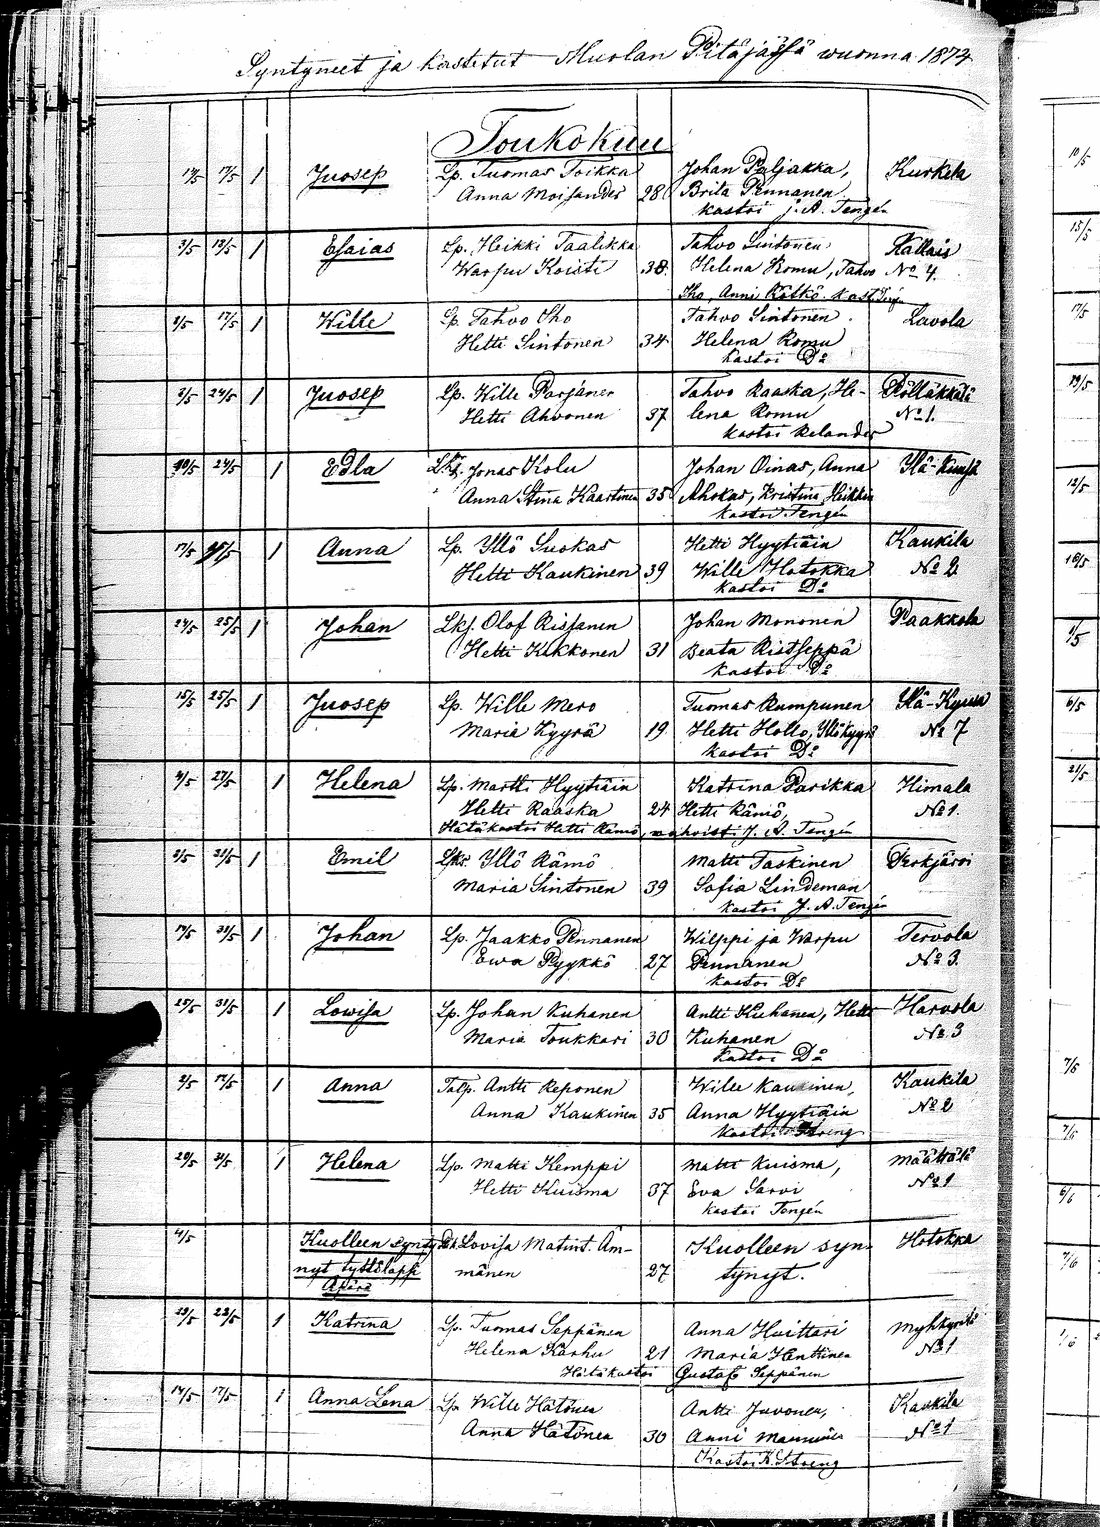 Syntyneet ja kastetut Muolan Pitäjässä wuonna 1874
Toukokuu
17/5 1 Juosep Lp. Tuomas Toikka Johan Paljakka, Kurkela
Anna Moisander 28 Brita Pennanen
kastoi j. A. Tengén
3/5 13/5 1 Esaias Lp. Heikki Taalikka Tahvo Sintonen Kallais
Warpu Koisti 38 Helena Romu, Tahvo No 4.
Iho, Anni Kölkö. kast. Tengén
2/5 17/5 1 Wille Lp. Tahvo Iho Tahvo Sintonen Lavola
Hetti Sintonen 34 Helena Romu
kastoi Do
2/5 24/5 1 Juosep Lp. Wille Parjanen Tahvo Raaska, He- Pölläkkälä
Hetti Ahvonen 37 lena Romu No 1.
kastoi Relander
24/5 1 Edla Jonas Kolu Johan Oinas, Anna Ylä-Kuusa
Anna Stina Kaartinen 35 Ahokas, Kristina Heikkin
kastoi Tengén
17/5 1 Anna Lp. Yllö Suokas Hetti Hyytiäin Kaukila
Hetti Kaukinen 39 Wille Hotokka No 2
kastoi Do
24/5 25/5 1 Johan Lksj. Olof Rissanen Johan Mononen Paakkola
Hetti Kekkonen 31 Beata Ristseppä
kastoi Do
15/5 25/5 1 Juosep Lp. Wille Mero Tuomas Rumpunen Ylä-Kuusa
Maria Kyyrä 19 Hetti Hollo, Yllö Kyyrä No 7
kastoi Do
2/5 27/5 1 Helena Lp. Martti Hyytiäin Katrina Parikka Himala
Hetti Raaska 24 Hetti Rämö, No 1.
Hätäkastoi Hetti Rämö, wahvisti J. A. Tengén
2/5 31/5 1 Emil Yllö Rämö Matti Taskinen Perkjärvi
Maria Sintonen 39 Sofia Lindeman
kastoi J. A. Tengén
31/5 1 Johan Lp. Jaakko Pennanen Wilppi ja Warpu Tervola
Ewa Pyykkö 27 Pennanen No 3.
kastoi Do
25/5 31/5 1 Lowisa Lp. Johan Kuhanen Antti Kuhanen, Hetti Harvola
Maria Toukkari 30 Kuhanen No 3
kastoi Do
2/5 17/5 1 Anna Talp. Antti Reponen Wille Kaukinen, Kaukila
Anna Kaukinen 35 Anna Hyytiäin No 2
kastoi Streng
29/5 31/5 1 Helena Lp. Matti Kemppi Matti Kuisma, Määttälä
Hetti Kuisma 37 Eva Sarvi No 1
kastoi Tengén
4/5 Kuolleen synty Lovisa Matint. Äm- Kuolleen syn- Hotokka
nyt tyttölapsi mänen 27 tynyt.
Äpärä
23/5 1 Katrina Lp. Tuomas Seppänen Anna Huittari Myhkyrilä
Helena Karhu 21 Maria Henttinen No 1
Hätäkastoi Gustaf Seppänen
14/5 17/5 1 Anna Lena Lp. Wille Hätönen Antti Juvonen, Kaukila
Anna Hätönen 30 Anni No 1
Kastoi K. Streng
10/5
15/5
17/5
19/5
12/5
16/5
1/5
6/5
21/5
7/5
7/5
6/6
7/6